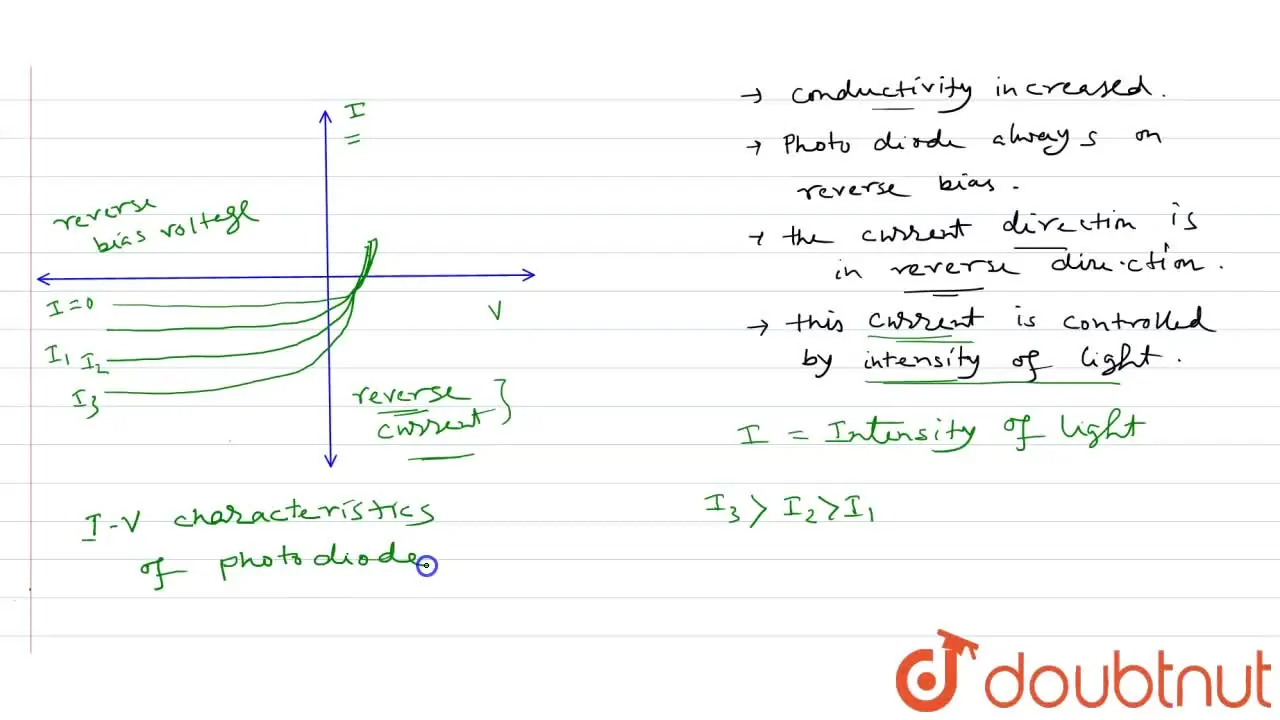 I
=
reverse
bias voltage
I = 0
I1 I2
I3
V
reverse }
current
I-V characteristics
of photodiode
→ conductivity increased.
→ Photo diode always on
reverse bias.
→ the current direction is
in reverse dire.ction.
→ this current is controlled
by intensity of light.
I = Intensity of light
I3 > I2 > I1
doubtnut